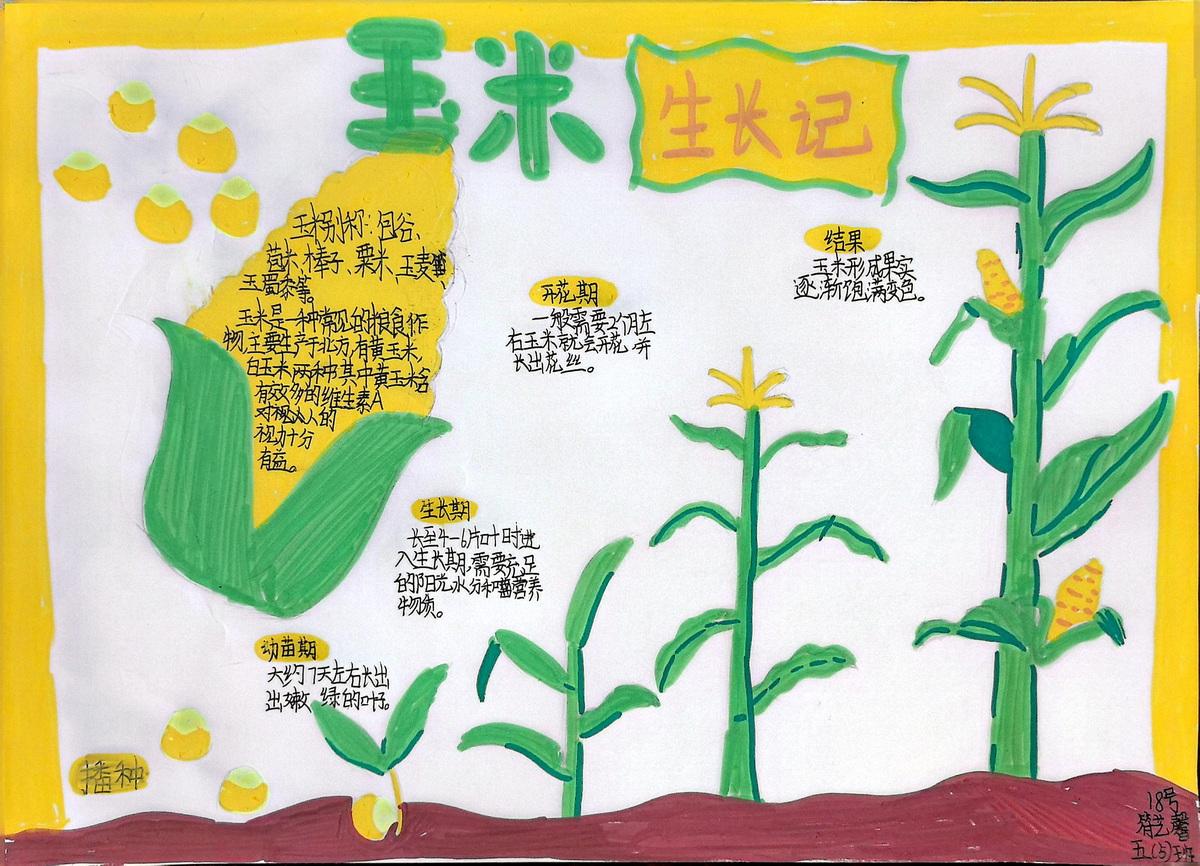 玉米
生长记
玉米别称:包谷、
苞米、棒子、粟米、玉麦、
玉蜀黍等。
玉米是一种常见的粮食作
物,主要生产于北方,有黄玉米,
白玉米两种其中黄玉米含
有效多的维生素A
对视人的
视力十分
有益。
结果
玉米形成果实
逐渐饱满变色。
开花期
一般需要2个月左
右玉米就会开花并
长出花丝。
生长期
长至4-6片叶时进
入生长期,需要充足
的阳光水分和营养
物质。
幼苗期
大约7天左右长出
出嫩绿的叶子。
播种
18号
符艺馨
五(5)班